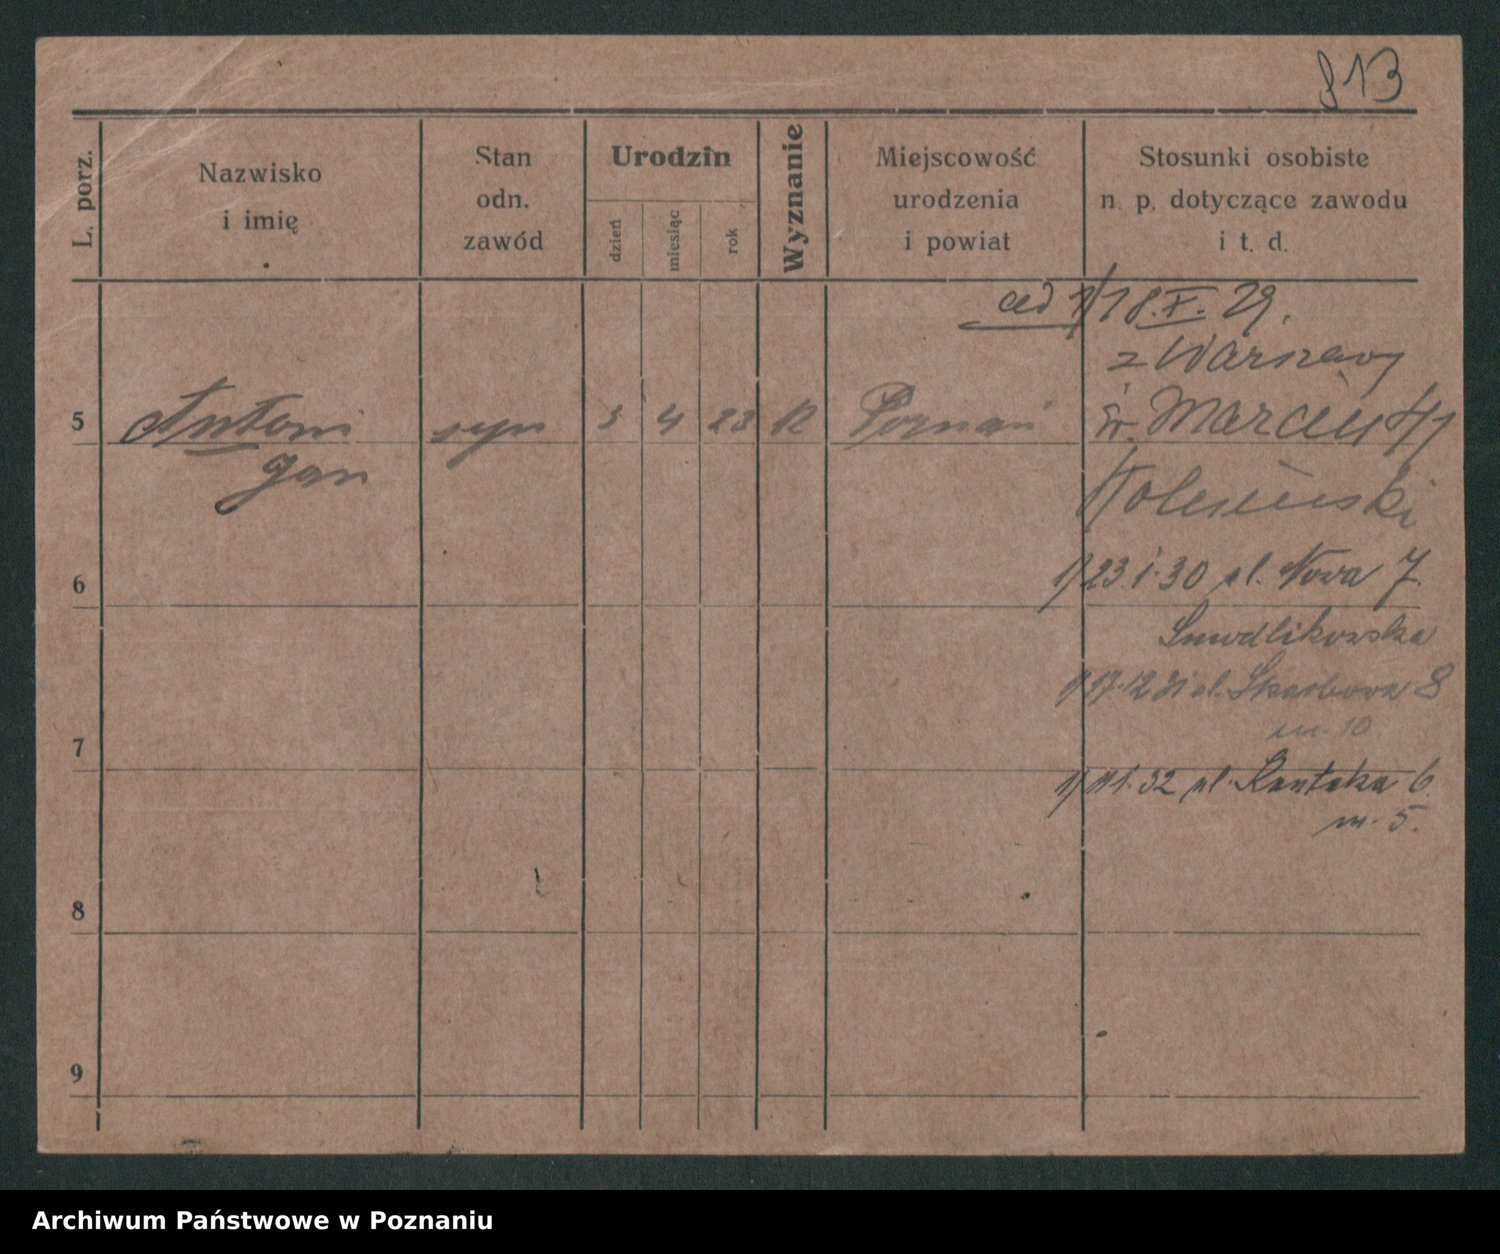 813
L. porz.
Nazwisko
i imię
Stan
odn.
zawód
Urodzin
dzień
miesiąc
rok
Wyznanie
Miejscowość
urodzenia
i powiat
Stosunki osobiste
n. p. dotyczące zawodu
i t. d.
ad 1/ 18.X.29.
z Warszawy
5 Antoni syn 5 4 23 R Poznań św. Marcin
Jan
6 1/ 23.1.30 ul. Nowa 7
1/ 17.12.31 ul. Skarbowa 8
m. 10.
7
1/ 11.32 ul. Kantaka 6.
m. 5.
8
9
Archiwum Państwowe w Poznaniu